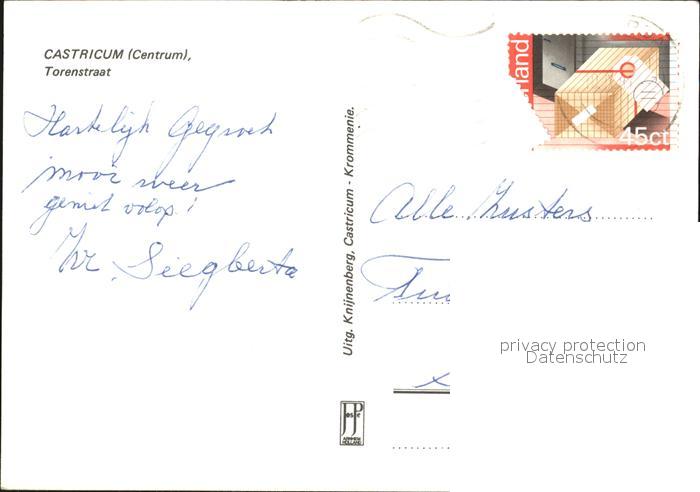 CASTRICUM (Centrum),
Torenstraat
Hartelijk Gegroet
mooi weer
geniet volop!
Zr. Siegberta
Uitg. Knijnenberg, Castricum - Krommenie.
rland
45ct
Alle Zusters
privacy protection
Datenschutz
JosPe
ARNHEM
HOLLAND